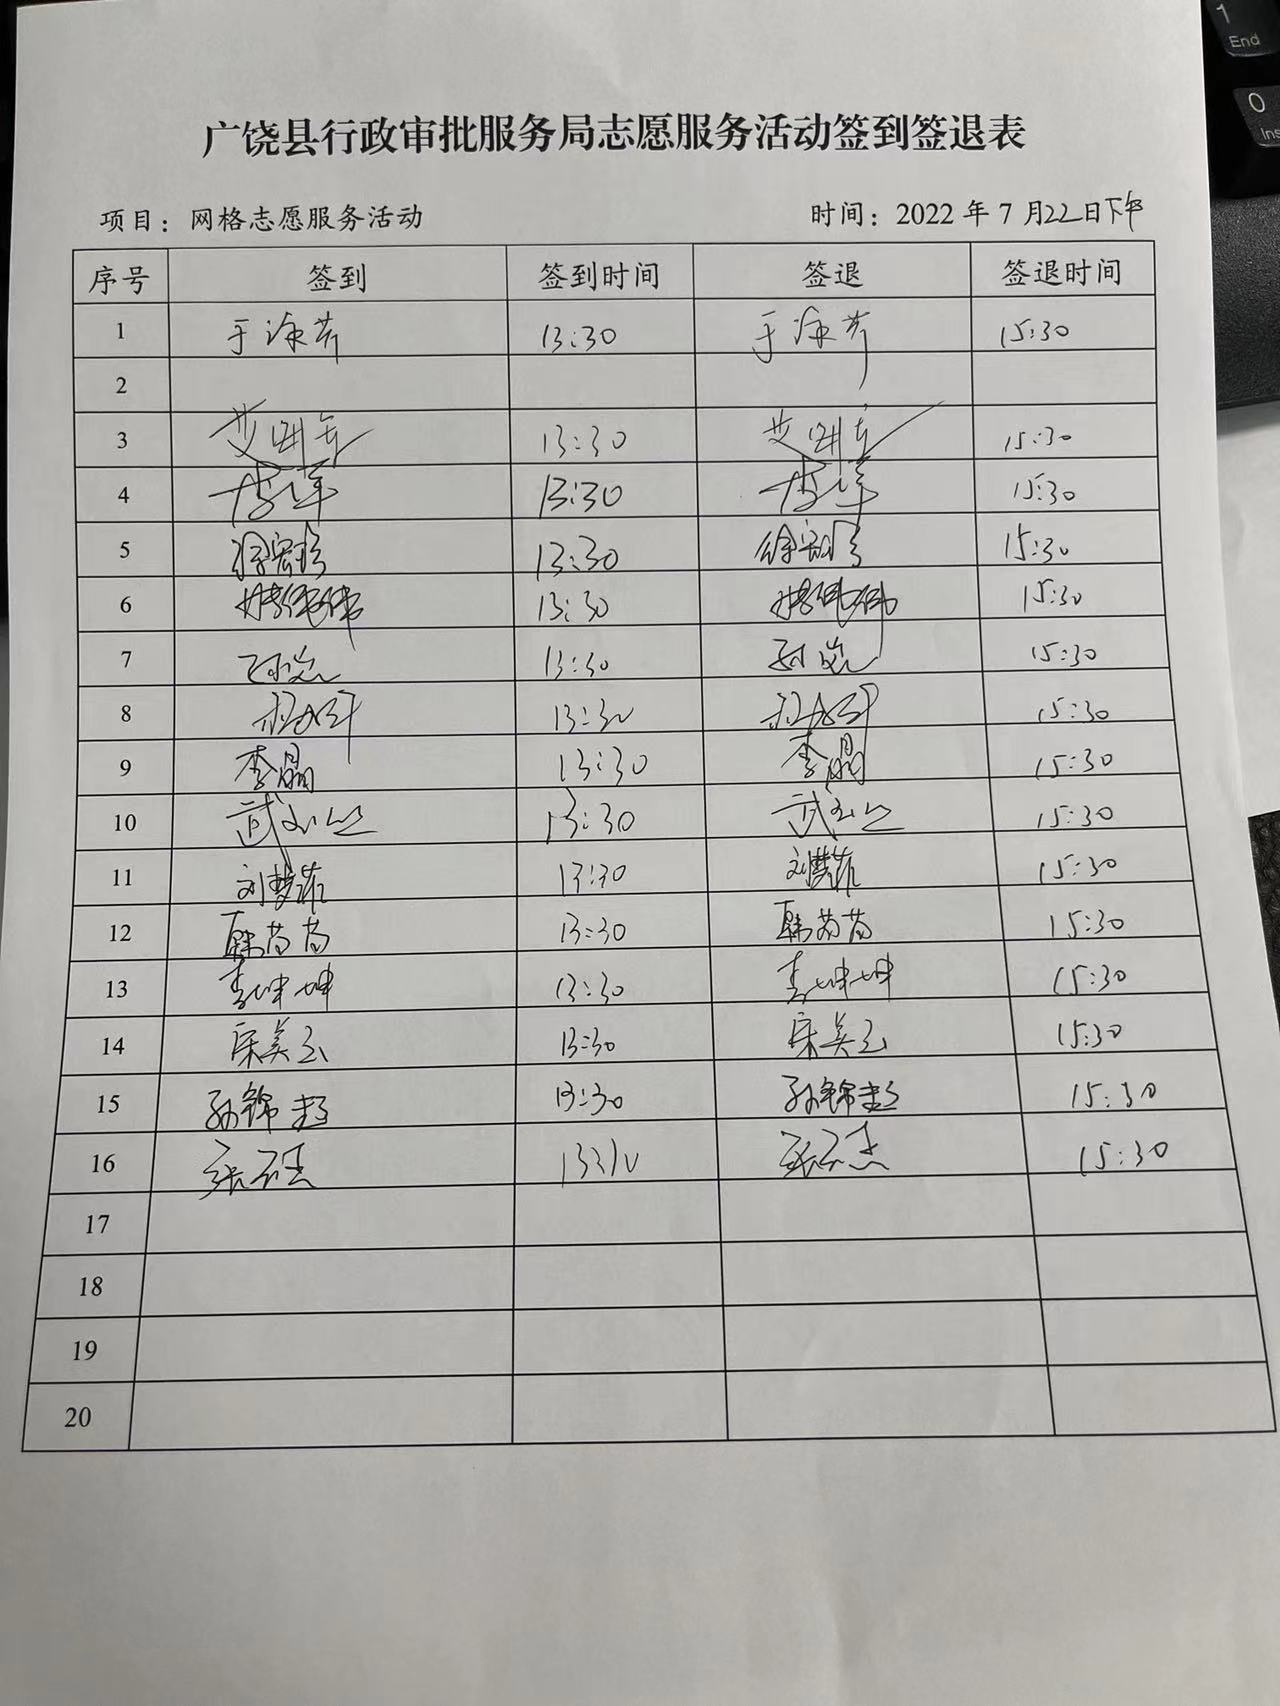 1
End
0
Ins
广饶县行政审批服务局志愿服务活动签到签退表
项目：网格志愿服务活动 时间：2022 年 7 月22日下午
序号 签到 签到时间 签退 签退时间
1 于 13:30 于 15:30
2
3 13:30 15:30
4 13:30 15:30
5 徐宏珍 13:30 徐宏珍 15:30
6 伟伟 13:30 伟伟 15:30
7 孙岚 13:30 孙岚 15:30
8 13:30 15:30
9 李晶 13:30 李晶 15:30
10 武 13:30 武 15:30
11 刘梦菲 13:30 刘梦菲 15:30
12 韩芮芮 13:30 韩芮芮 15:30
13 李坤坤 13:30 李坤坤 15:30
14 宋美玉 13:30 宋美玉 15:30
15 孙锦超 13:30 孙锦超 15:30
16 张 张 15:30
17
18
19
20